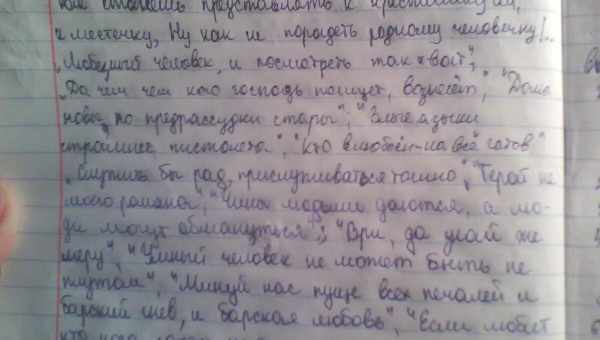 как станешь представлять к крестишку ли,
к местечку, Ну как не порадеть родному человечку!..
„Любезный человек, и посмотреть так хват",
„Да чем чем кого господь поищет, вознесёт", "Дома
новы, но предрассудки стары"; "Злые языки
страшнее пистолета", "Кто влюблён-на всё готов"
„Служить бы рад, прислуживаться тошно", "Герой не
моего романа", "Чины людьми даются, а лю-
ди могут обмануться"; "Ври, да знай же
меру", "Умный человек не может быть не
плутом", "Минуй нас пуще всех печалей и
барский гнев, и барская любовь", "Если любит